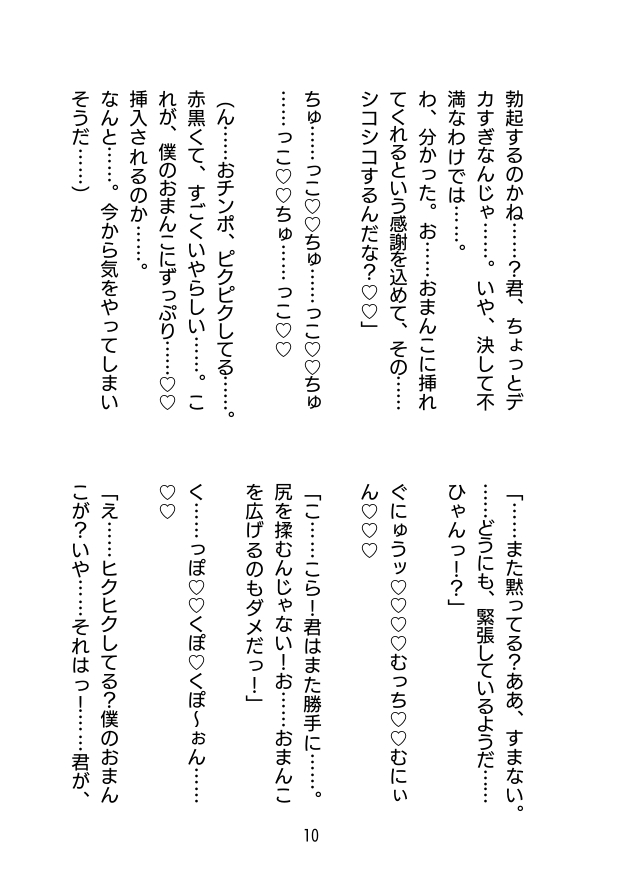 勃起するのかね……？君、ちょっとデ
カすぎなんじゃ……。いや、決して不
満なわけでは……。
わ、分かった。お……おまんこに挿れ
てくれるという感謝を込めて、その……
シコシコするんだな？♡♡」
ちゅ……っこ♡♡ちゅ……っこ♡♡ちゅ
……っこ♡♡ちゅ……っこ♡♡
（ん……おチンポ、ピクピクしてる……。
赤黒くて、すごくいやらしい……。こ
れが、僕のおまんこにずっぷり……♡♡
挿入されるのか……。
なんと……。今から気をやってしまい
そうだ……）
「……また黙ってる？ああ、すまない。
……どうにも、緊張しているようだ……
ひゃんっ！？」
ぐにゅうッ♡♡♡♡むっち♡♡むにぃ
ん♡♡♡
「こ……こら！君はまた勝手に……。
尻を揉むんじゃない！お……おまんこ
を広げるのもダメだっ！」
く……っぽ♡♡くぽ♡くぽ〜ぉん……
♡♡
「え……ヒクヒクしてる？僕のおまん
こが？いや……それはっ！……君が、
10